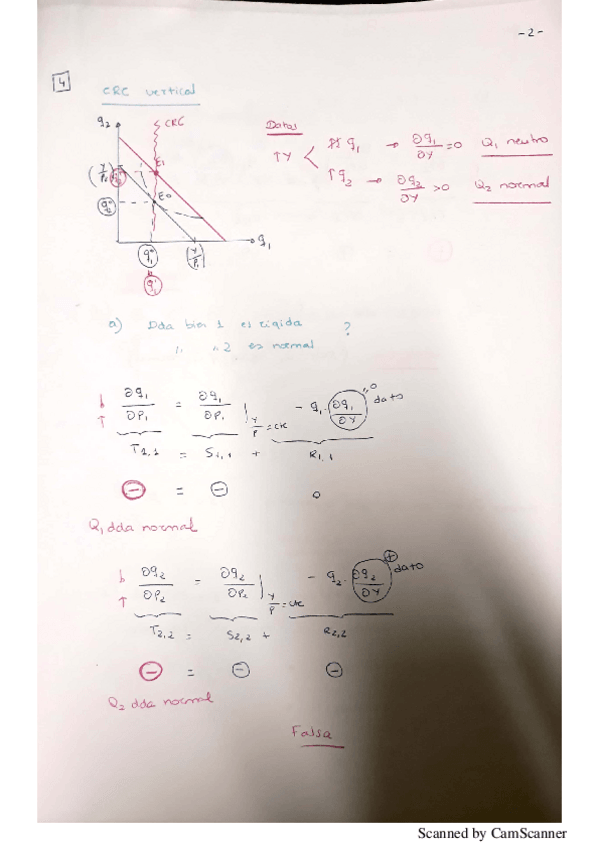 -2-
4
CRC vertical
q2
CRC
E1
E0
q1
Datos
↑Y < q1 → ∂q1/∂Y = 0 Q1 neutro
↑q2 → ∂q2/∂Y > 0 Q2 normal
a) Dda bien 1 es rigida ?
" " 2 es normal
↓ ↑ ∂q1/∂P1 = ∂q1/∂P1 | Y/P = cte - q1 · ∂q1/∂Y "0 dato
= S1,1 + R1,1
⊖ = ⊖ 0
Q1 dda normal
↓ ↑ ∂q2/∂P2 = ∂q2/∂P2 | Y/P = cte - q2 · ∂q2/∂Y ⊕ dato
T2,2 = S2,2 + R2,2
⊖ = ⊖ ⊖
Q2 dda normal
Falsa
Scanned by CamScanner